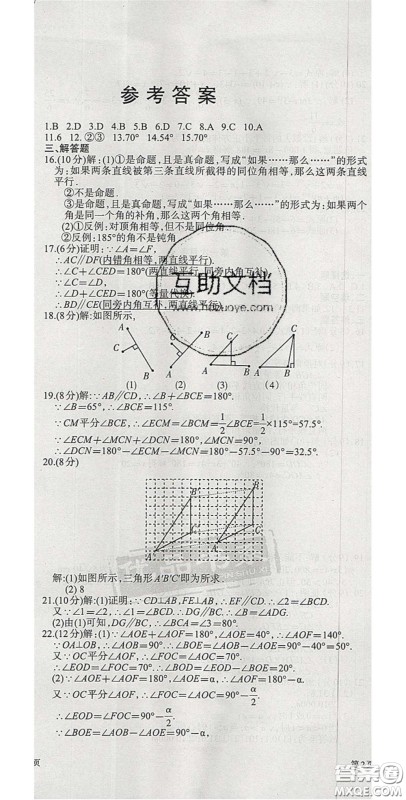 参考答案
1.B 2.D 3.D 4.B 5.B 6.D 7.C 8.A 9.C 10.A
11.6 12.②③ 13.70° 14.54° 15.70°
三、解答题
16.(10分)解:(1)①是命题,且是真命题,写成“如果……那么……”的形式
为:如果两条直线被第三条直线所截得的同位角相等,那么这两条直线
平行.
②不是命题.
③是命题,且是真命题,写成“如果……那么……”的形式为:如果两个
角是同一个角的补角,那么这两个角相等.
(2)①反例:对顶角相等,但不是同位角.
②反例:185°的角不是钝角.
17.(6分)证明:∵∠A=∠F,
∴AC∥DF(内错角相等,两直线平行).
∴∠C+∠CED=180°(两直线平行,同旁内角互补).
∵∠C=∠D,
∴∠D+∠CED=180°(等量代换).
∴BD∥CE(同旁内角互补,两直线平行).
18.(8分)解:如图所示,
A B C
A B C
A B C
A B C
(1) (2) (3) (4)
19.(8分)解:∵AB∥CD,∴∠B+∠BCE=180°.
∵∠B=65°,∴∠BCE=115°.
∵CM平分∠BCE,∴∠ECM=∠BCM=1/2∠BCE=1/2×115°=57.5°.
∵∠ECM+∠MCN+∠DCN=180°,∠MCN=90°,
∴∠DCN=180°-∠ECM-∠MCN=180°-57.5°-90°=32.5°.
20.(8分)
解:(1)如图所示,三角形A′B′C′即为所求.
(2) 8
21.(10分)解:(1)证明:∵CD⊥AB,FE⊥AB,∴EF∥CD.∴∠2=∠BCD.
又∵∠1=∠2,∴∠1=∠BCD.∴DG∥BC.∴∠B=∠ADG.
(2)由(1)可知,DG∥BC,∴∠BCA=∠3=80°.
22.(12分)解:(1)∵∠AOE+∠AOF=180°,∠AOE=40°,∴∠AOF=140°.
∵OA⊥OB,∴∠AOB=90°.∴∠BOE=∠AOB-∠AOE=90°-40°=50°.
又∵OC平分∠AOF,∴∠FOC=∠AOC=70°.
∴∠EOD=∠FOC=70°.∴∠BOD=∠BOE+∠EOD=120°.
(2)∵∠AOE+∠AOF=180°,∠AOE=α,∴∠AOF=180°-α.
又∵OC平分∠AOF,∴∠FOC=∠AOC=90°-α/2.
∴∠EOD=∠FOC=90°-α/2.
∵∠BOE=∠AOB-∠AOE=90°-α,
页
互助文档
www.hdzuoye.com
MXQE.COM